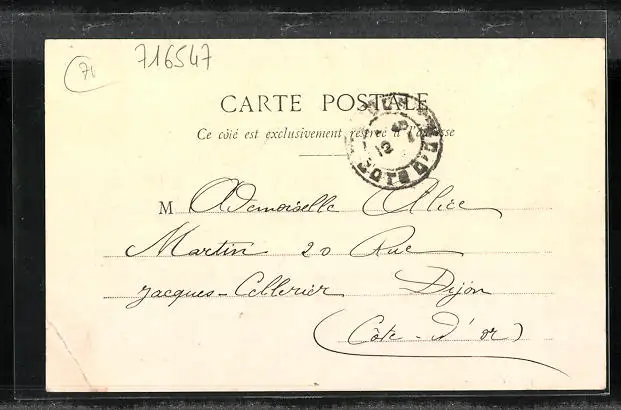 71 716547
CARTE POSTALE
Ce côté est exclusivement réservé à l'adresse
12
COTE D'OR
M Ademoiselle Alice
Martin 20 Rue
Jacques-Cellerier Dijon
(Côte-d'or)